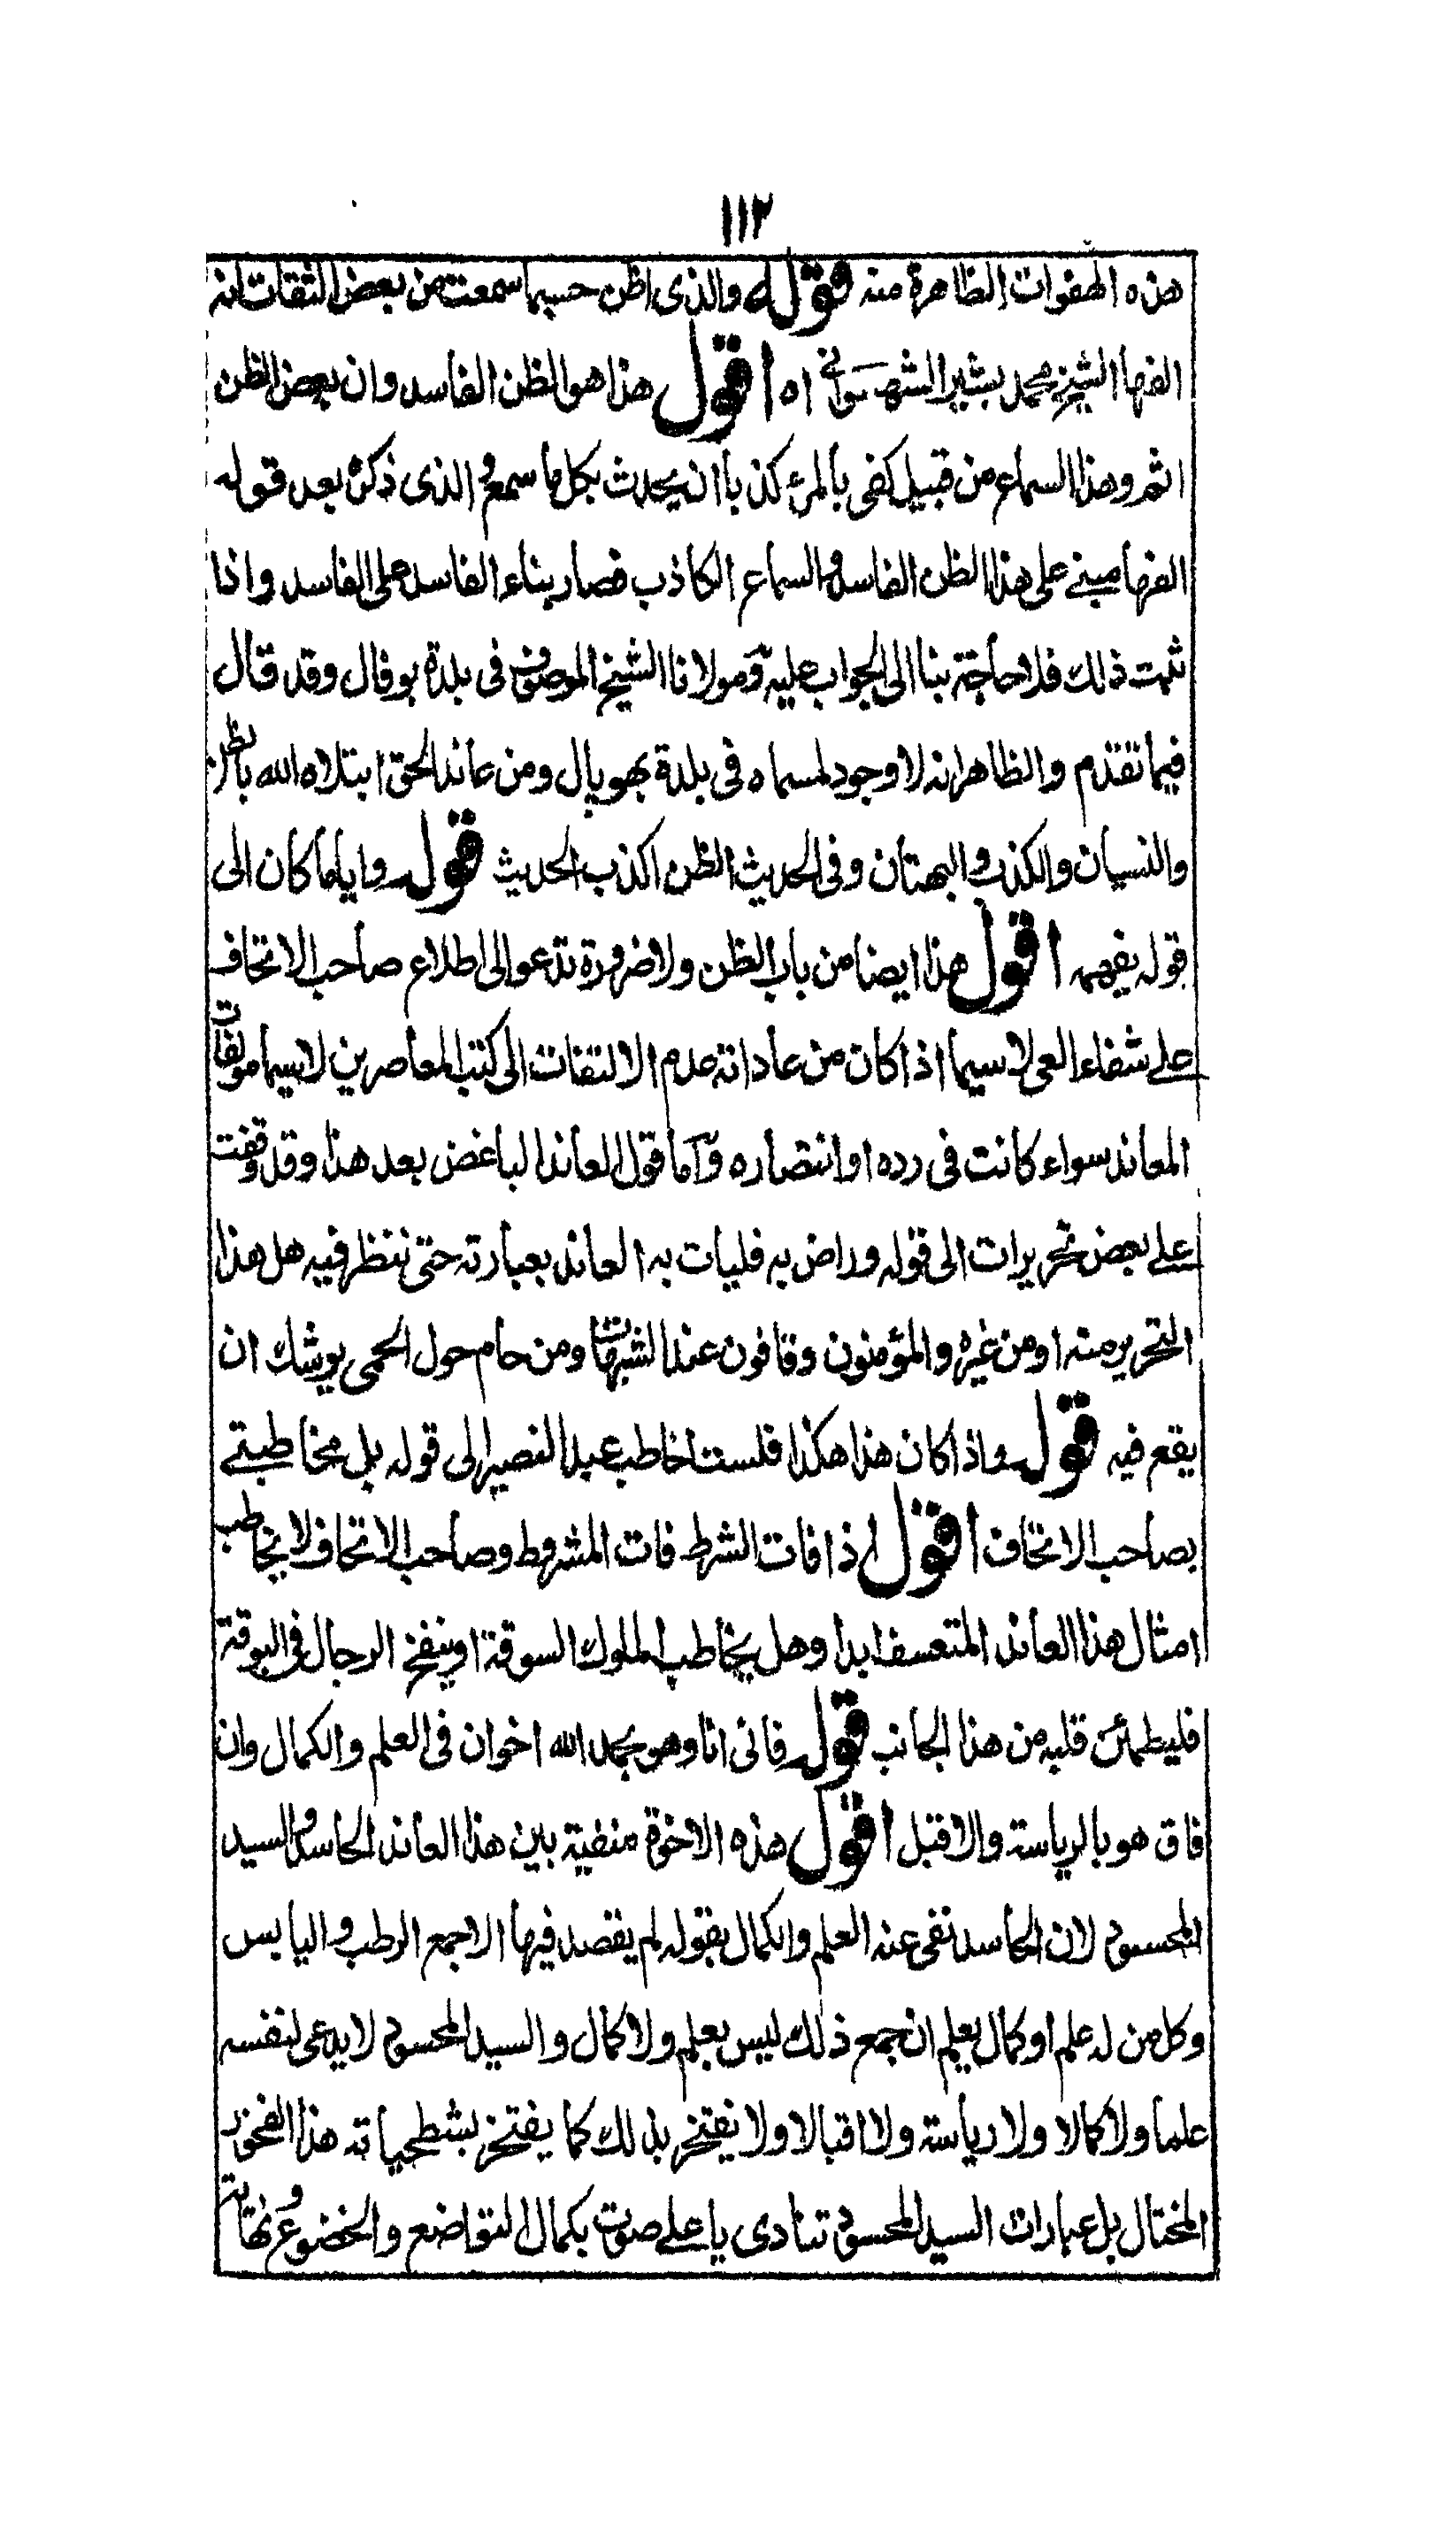 ١١٢
هذه الهفوات الظاهرة منه قوله والذى اظن حسبما سمعت من بعض الثقات انه
الفها الشيخ محمد بشير السهسوانى اه اقول هذا هو الظن الفاسد وان بعض الظن
اثم وهذا السماع من قبيل كفى بالمرء كذبا ان يحدث بكل ما سمع والذى ذكره بعد قوله
الفها مبنے على هذا الظن الفاسد والسماع الكاذب فصار بناء الفاسد على الفاسد واذا
ثبت ذلك فلا حاجة بنا الى الجواب عليه ومولانا الشيخ الموصوف فى بلدة بوفال وقد قال
فيما تقدم والظاهر انه لا وجود لمسماه فى بلدة بهوپال ومن عاند الحق ابتلاه الله بالظن
والنسيان والكذب والبهتان وفى الحديث الظن اكذب الحديث قوله وايا ما كان الى
قوله يفهمه اقول هذا ايضا من باب الظن ولا ضرورة تدعو الى اطلاع صاحب الاتحاف
علے شفاء العى لا سيما اذا كان من عاداته عدم الالتفات الى كتب المعاصرين لا سيما مولفات
المعاند سواء كانت فى رده او انتصاره واما قول العاند الباغض بعد هذا وقد وقفت
علے بعض تحريرات الى قوله وراض به فليات به العاند بعبارته حتى ننظر فيه هل هذا
التحرير منه او من غيره والمؤمنون وقافون عند الشبهات ومن حام حول الحمى يوشك ان
يقع فيه قوله واذا كان هذا هكذا فلست اخاطب عبد النصير الى قوله بل مخاطبتے
بصاحب الاتحاف اقول اذا فات الشرط فات المشروط وصاحب الاتحاف لا يخاطب
امثال هذا العاند المتعسف ابدا وهل يخاطب الملوك السوقة او ينفخ الرجال فى البوقة
فليطمئن قلبه من هذا الجانب قوله فانى انا وهو بحمد الله اخوان فى العلم والكمال وان
فاق هو بالرياسة والاقبل اقول هذه الاخوة منفية بين هذا العاند الحاسد والسيد
المحسود لان الحاسد نفى عنه العلم والكمال بقوله لم يقصد فيها الا جمع الرطب واليابس
وكل من له علم او كمال يعلم ان جمع ذلك ليس بعلم ولا كمال والسيد المحسود لا يدعى لنفسه
علما ولا كمالا ولا رياسة ولا اقبالا ولا يفتخر بذلك كما يفتخر بشطحياته هذا الفخور
المختال بل عبارات السيد المحسود تنادى باعلے صوت بكمال التواضع والخضوع ونهاية